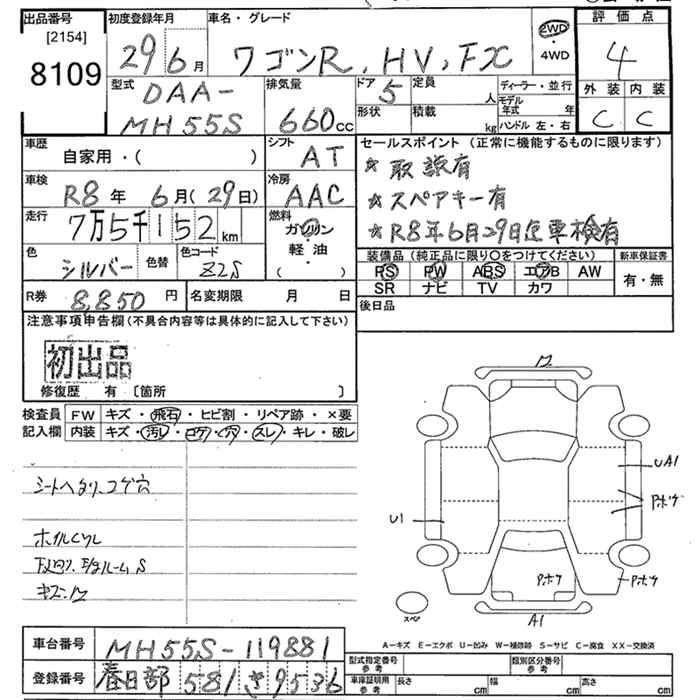 出品番号
[2154]
8109
初度登録年月
29 6月
車名・グレード
ワゴンR, HV, FX
2WD
・
4WD
評価点
4
外装 内装
C C
型式
DAA-
MH55S
排気量
660cc
ドア 5
定員 人
形状
積載 kg
ディーラー・並行
モデル年式 年
ハンドル 左・右
車歴
自家用・( )
シフト
AT
セールスポイント (正常に機能するものに限ります)
☆ 取説有
☆ スペアキー有
☆ R8年6月29日迄車検有
車検
R8年 6月(29日)
冷房
AAC
走行
7万5千152km
燃料
ガソリン
軽・油
( )
色
シルバー
色替
色コード
Z2S
装備品 (純正品に限り○をつけてください)
PS PW ABS エアB AW
SR ナビ TV カワ
新車保証書
有・無
R券 8,850円
名変期限 月 日
後日品
注意事項申告欄(不具合内容等は具体的に記入して下さい)
初出品
修復歴 有〔箇所 〕
検査員
記入欄
FW キズ・飛石・ヒビ割・リペア跡・×要
内装 キズ・汚レ・コゲ・穴・スレ・キレ・破レ
シートヘタリ、コゲ穴
ホイルCウレ
下廻り、E/gルームS
キズ・ワ
ワ
UA1
Pボケ
U1
Pボケ
Pボケ
スペア
A1
A-キズ E-エクボ U-凹み W-補修跡 S-サビ C-腐食 XX-交換済
車台番号
MH55S-119881
登録番号
春日部 581 さ 9536
型式指定番号
参考
類別区分番号
参考
車庫証明用
参考
長さ cm
幅 cm
高さ cm